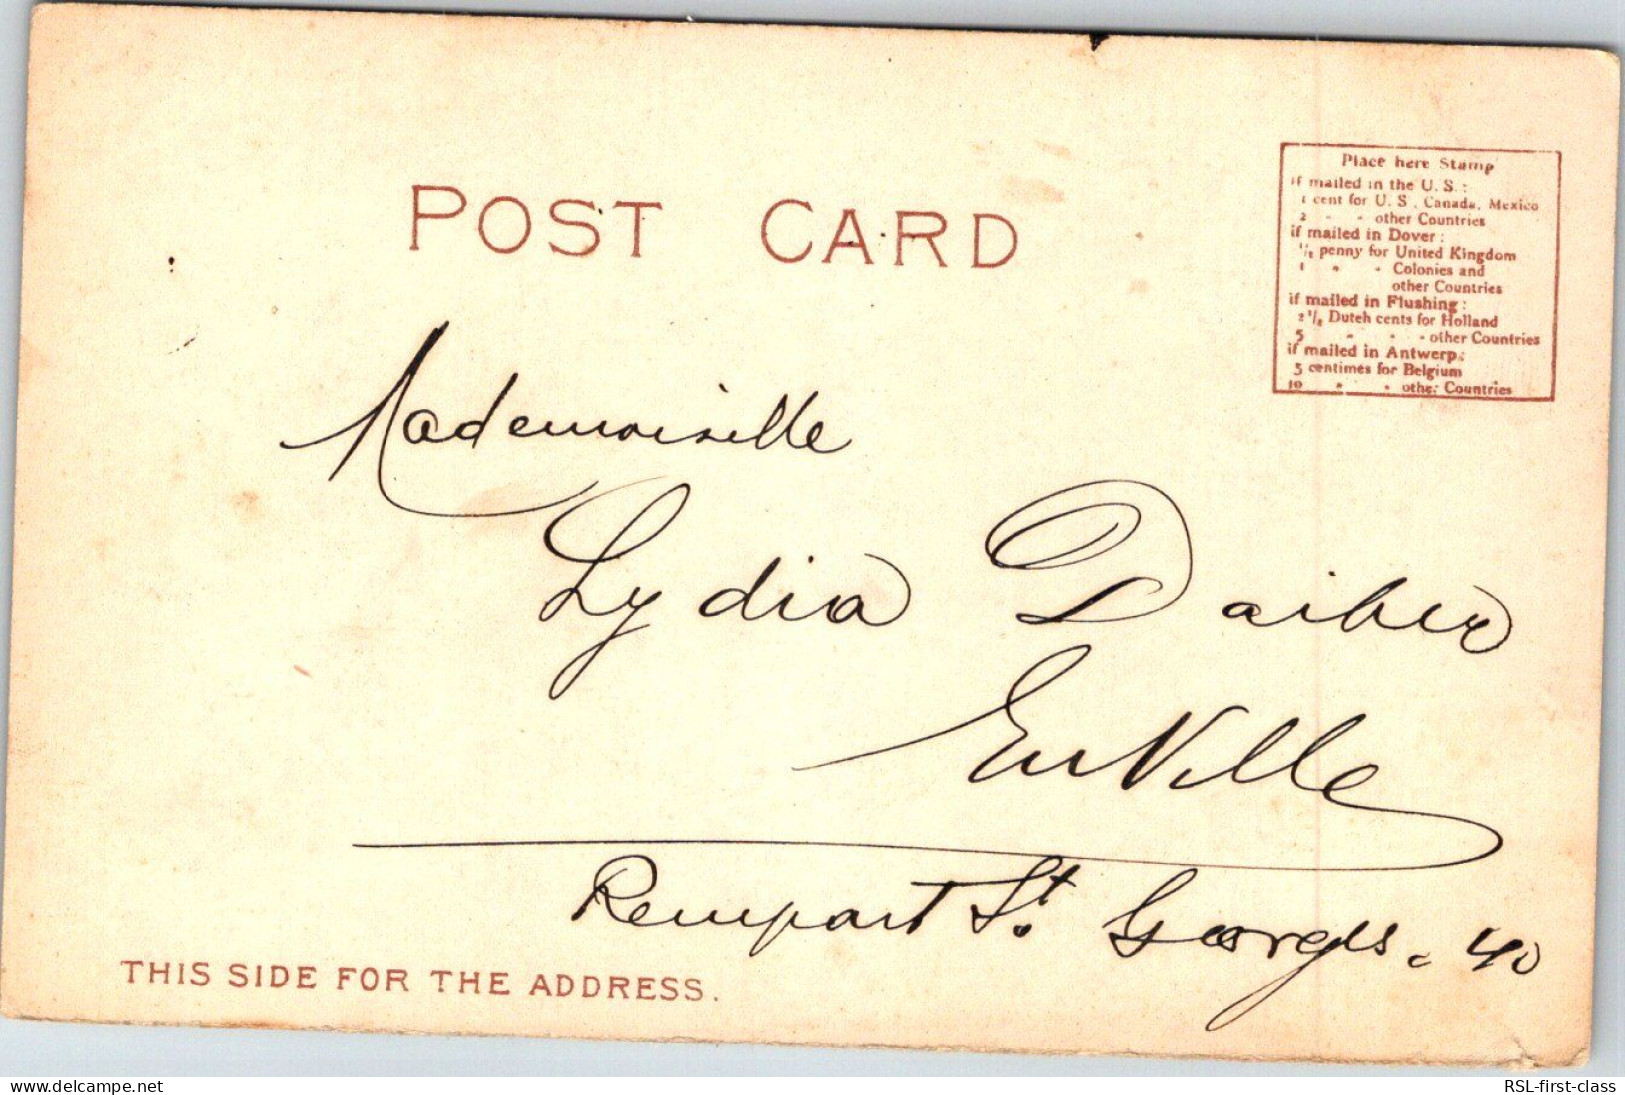 POST CARD
Place here Stamp
if mailed in the U. S. :
1 cent for U. S. Canada, Mexico
2 " " other Countries
if mailed in Dover :
1/2 penny for United Kingdom
1 " " Colonies and
other Countries
if mailed in Flushing :
2 1/2 Dutch cents for Holland
5 " " " other Countries
if mailed in Antwerp:
5 centimes for Belgium
10 " " other Countries
Mademoiselle
Lydia Daiber
En Ville
Rempart St. Georges. 40
THIS SIDE FOR THE ADDRESS.
delcampe.net
RSL-first-class